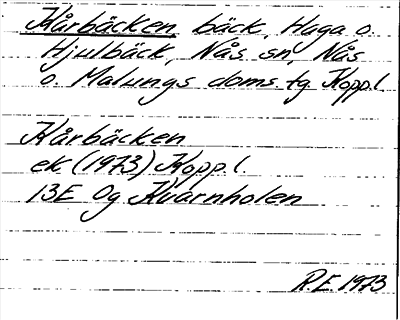 Kårbäcken, bäck, Haga o.
Hjulbäck, Nås sn, Nås
o. Malungs doms. tg Kopp.l.
Kårbäcken
ek (1973) Kopp.l.
13E 0g Kvarnholen
R.E. 1973